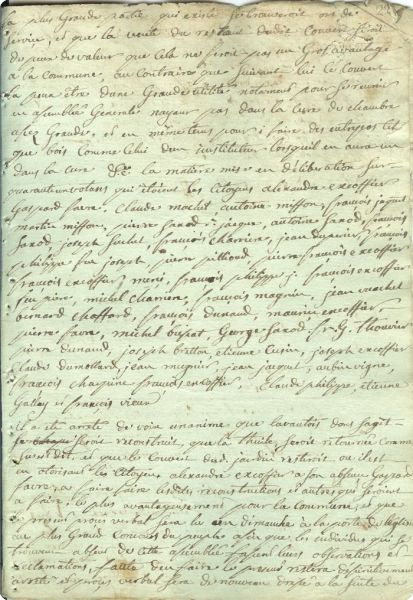 plus Grande partie qui existe se trouveroit ors de
service, et que la vente du restant dudit Couvert seroit
de peu de valeur que cela ne seroit pas un Gros avantage
a la Commune, au Contraire que suivant lui Ce Couvert
la peu être dune Grande utilité notament pour se reunir
en assemblée Generale nayant pas dans la Cure de chambre
assez Grande, et en meme tems pour i faire des entrepos tel
que bois Comme Celui dun instituteur lorsquil en aura un
dans la Cure la matiere mise en déliberation sur
quarante votans qui etoient les Citoyens alexandre excoffier
Gaspard favre, Claude machet antoine miffon françois jaquet
martin miffon, pierre sarod jaque, antoine sarod, françois
sarod joseph françois Charriere, jean françois
philippe feu joseph pierre pilloud, pierre françois excoffier
françois excoffier françois philippe j. françois excoffier
feu pere, michel Chamen, françois magnin, jean machet
bernard Choffard, françois dunand, maurice excoffier
pierre favre, michel George sarod
pierre dunand, joseph Critton, etienne joseph excoffier
Claude dumollard, jean mugnier, jean jaquet, aubin vigne,
françois Charpine françois excoffier, Claude philippe, etienne
Gallay et françois vieux
il a ete arrete de voix unanime que lavantois dont sagit
seroit reconstruit, que la seroit retournée Comme
dit, et que le Couvert du jardin restroit ou il est
en otorisant les Citoyens alexandre excoffier a son absence Gaspard
favre, a faire faire les dites reconstructions et autres qui seroient
a faire, le plus avantageusement pour la Commune, et que
le present proces verbal sera lu un dimanche a la porte de leglise
au plus Grand Concours du peuple afin que les individus qui se
trouvent absens de Cette assemblée fassent leurs observations et
reclamations, faute den faire le present restera
arrete et proces verbal sera de nouveau dressé a la suite du